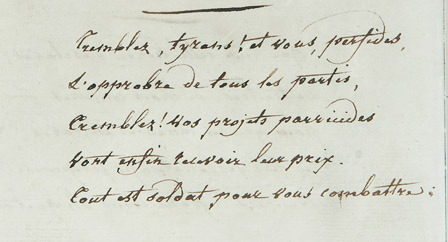 Tremblez, tyrans! et vous, perfides,
L'opprobre de tous les partis,
Tremblez! vos projets parricides
Vont enfin recevoir leur prix.
Tout est soldat pour vous combattre: